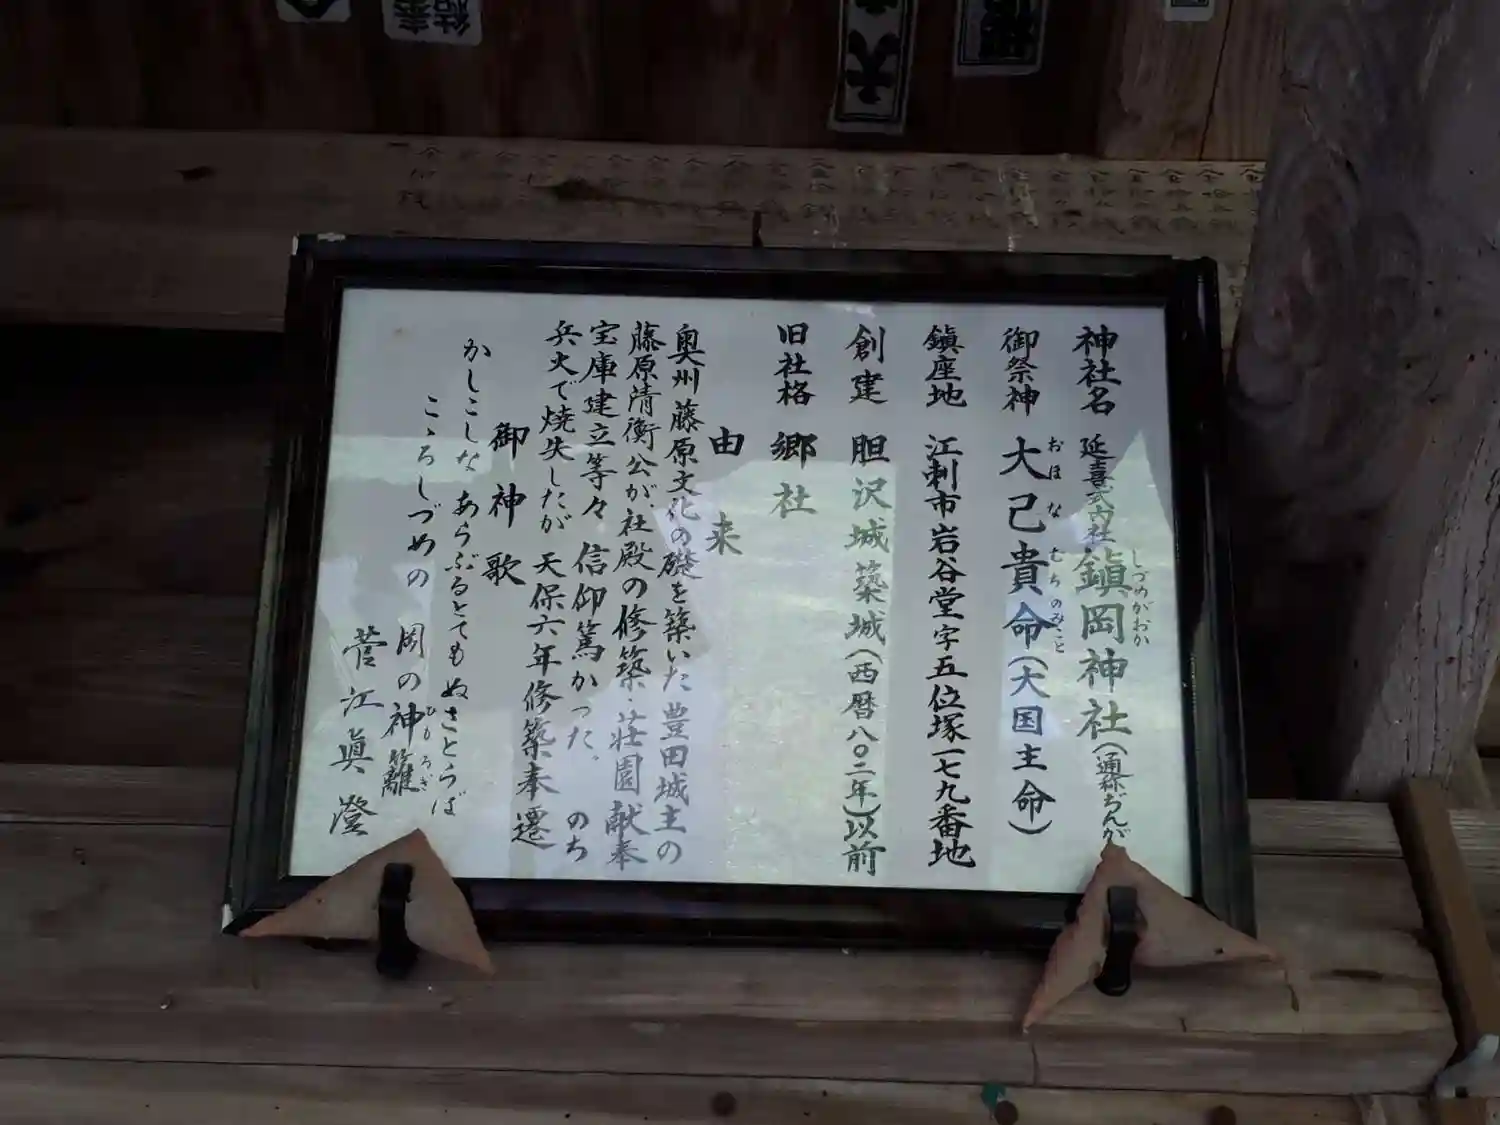 神社名 延喜式内社 鎮岡神社(通称ぢんが
しづめがおか
御祭神 大己貴命(大国主命)
おほなむちのみこと
鎮座地 江刺市岩谷堂字五位塚一七九番地
創建 胆沢城築城(西暦八〇二年)以前
旧社格 郷社
由来
奥州藤原文化の礎を築いた豊田城主の
藤原清衡公が、社殿の修築・荘園献奉
宝庫建立等々 信仰篤かった。 のち
兵火で焼失したが 天保六年修築奉遷
御神歌
かしこしな あらぶるとてもぬさとらば
こゝろしづめの 岡の神籬
ひもろぎ
菅江眞澄